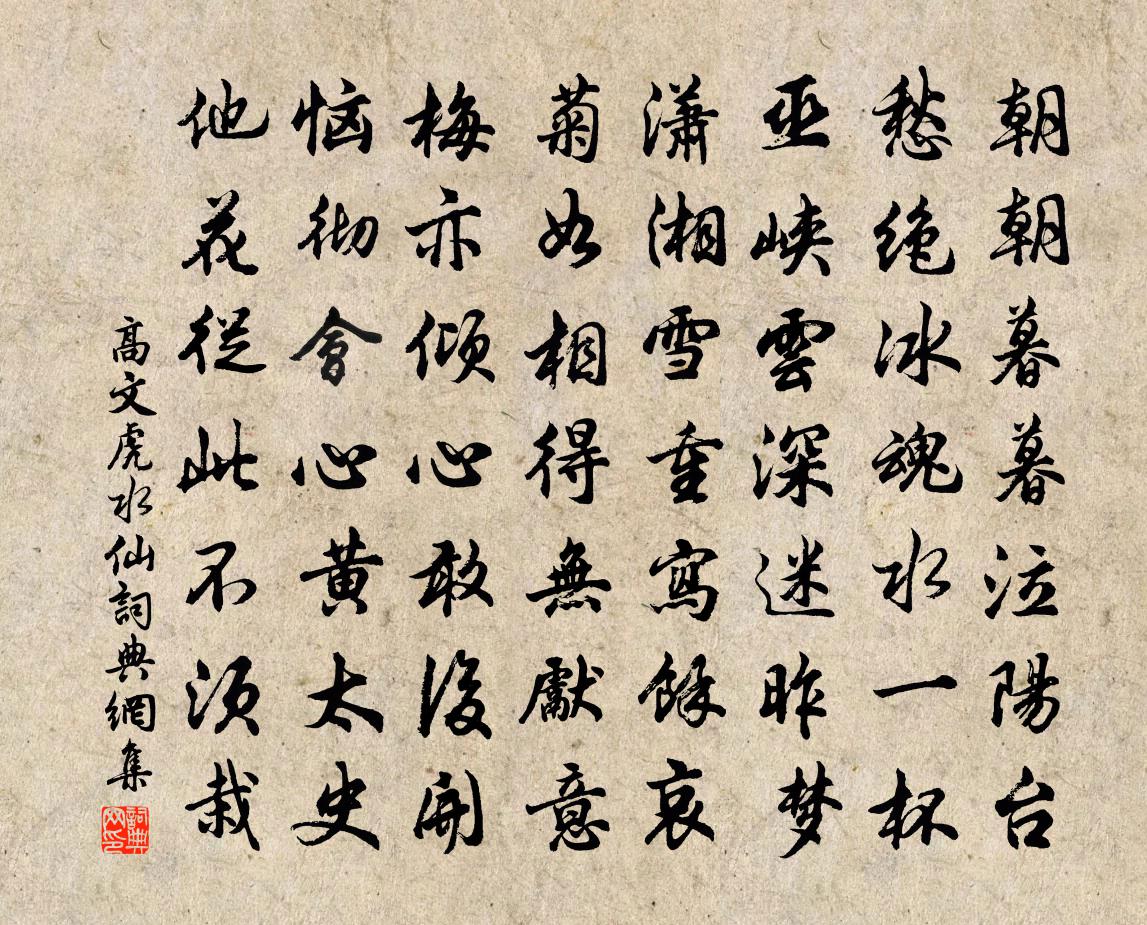 朝朝暮暮泣陽台
愁绝冰魂水一杯
巫峡雲深迷昨梦
潇湘雪重寫餘哀
菊如相得無獻意
梅亦倾心敢後開
恼彻會心黄太史
他花從此不须栽
高文虎水仙詞典網集
詞典網印